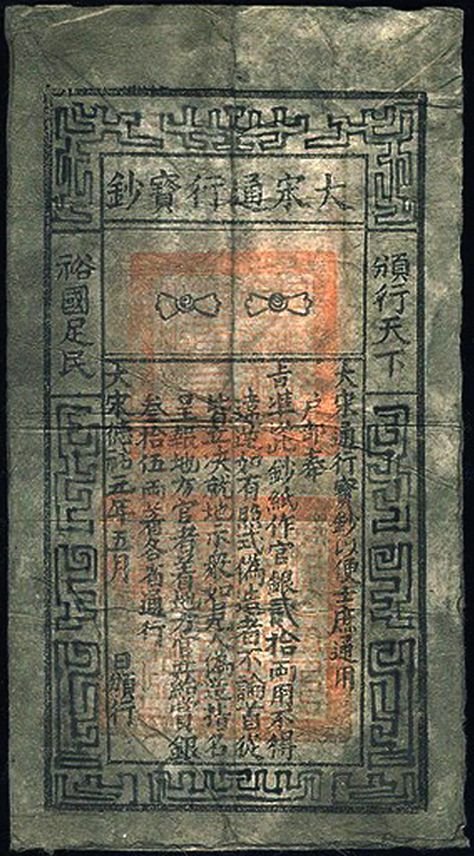 大宋通行寶鈔
頒行天下
裕國足民
大宋通行寶鈔以便士庶通用
户部奉
旨準此鈔紙作官銀貳拾兩用不得
違逆如有照式偽造者不論首從
皆立決就地示衆如見人偽造指名
呈報地方官者着地方官立給賞銀
叁拾伍兩著各省通行
大宋德祐五年五月 日頒行